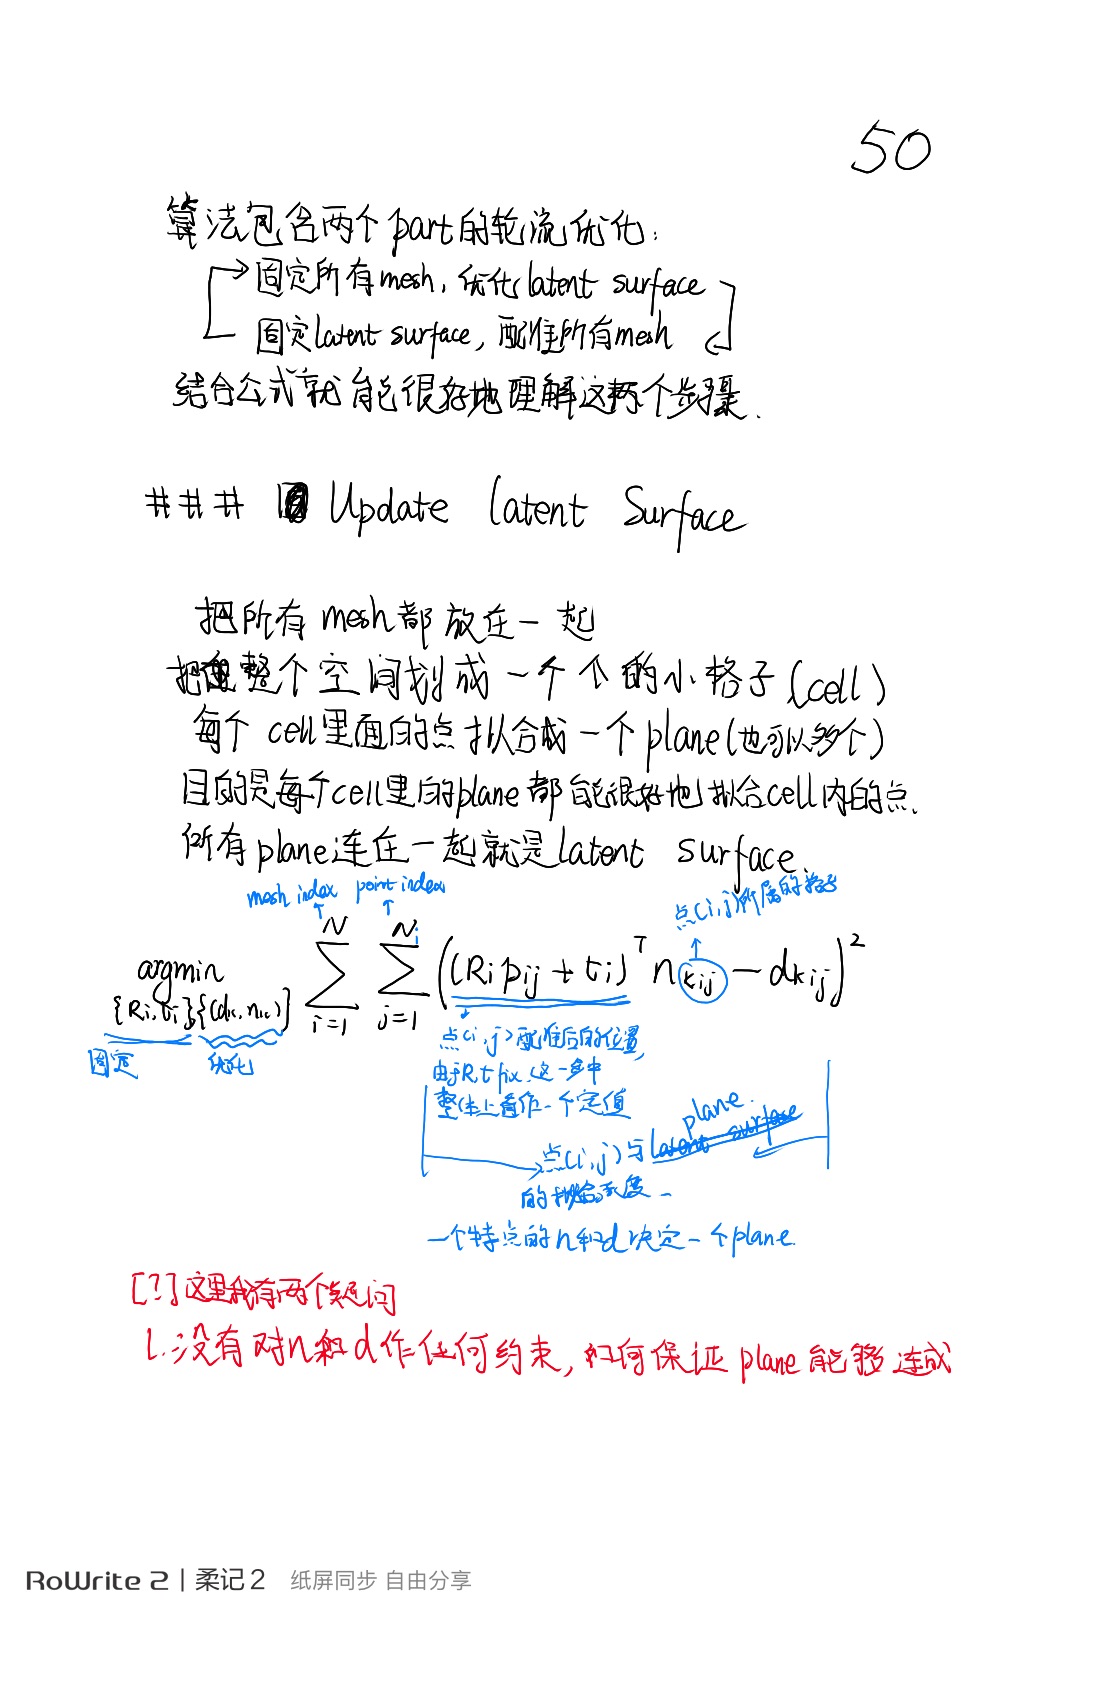 50
算法包含两个part的轮流优化:
固定所有mesh, 优化latent surface
固定latent surface, 配准所有mesh
结合公式就能很好地理解这两个步骤.
### Update latent Surface
把所有mesh都放在一起
把整个空间划成一个个的小格子(cell)
每个cell里面的点拟合成一个plane(也可以多个)
目的是每个cell里的plane都能很好地拟合cell内的点.
所有plane连在一起就是latent surface.
mesh index point index 点(i,j)所属的格子
argmin {Ri,ti}{(dk,nk)} Σ_{i=1}^{N} Σ_{j=1}^{Ni} ((Ri pij + ti)^T n_{kij} - d_{kij})^2
固定 优化
点(i,j)配准后的位置,
由于R,t fix,这一步中
整体上看作一个定值
plane.
点(i,j)与latent surface
的拟合程度
一个特点的n和d决定一个plane.
[?]这里我有两个疑问
1.没有对n和d作任何约束,如何保证plane能够连成
RoWrite 2 | 柔记2 纸屏同步 自由分享